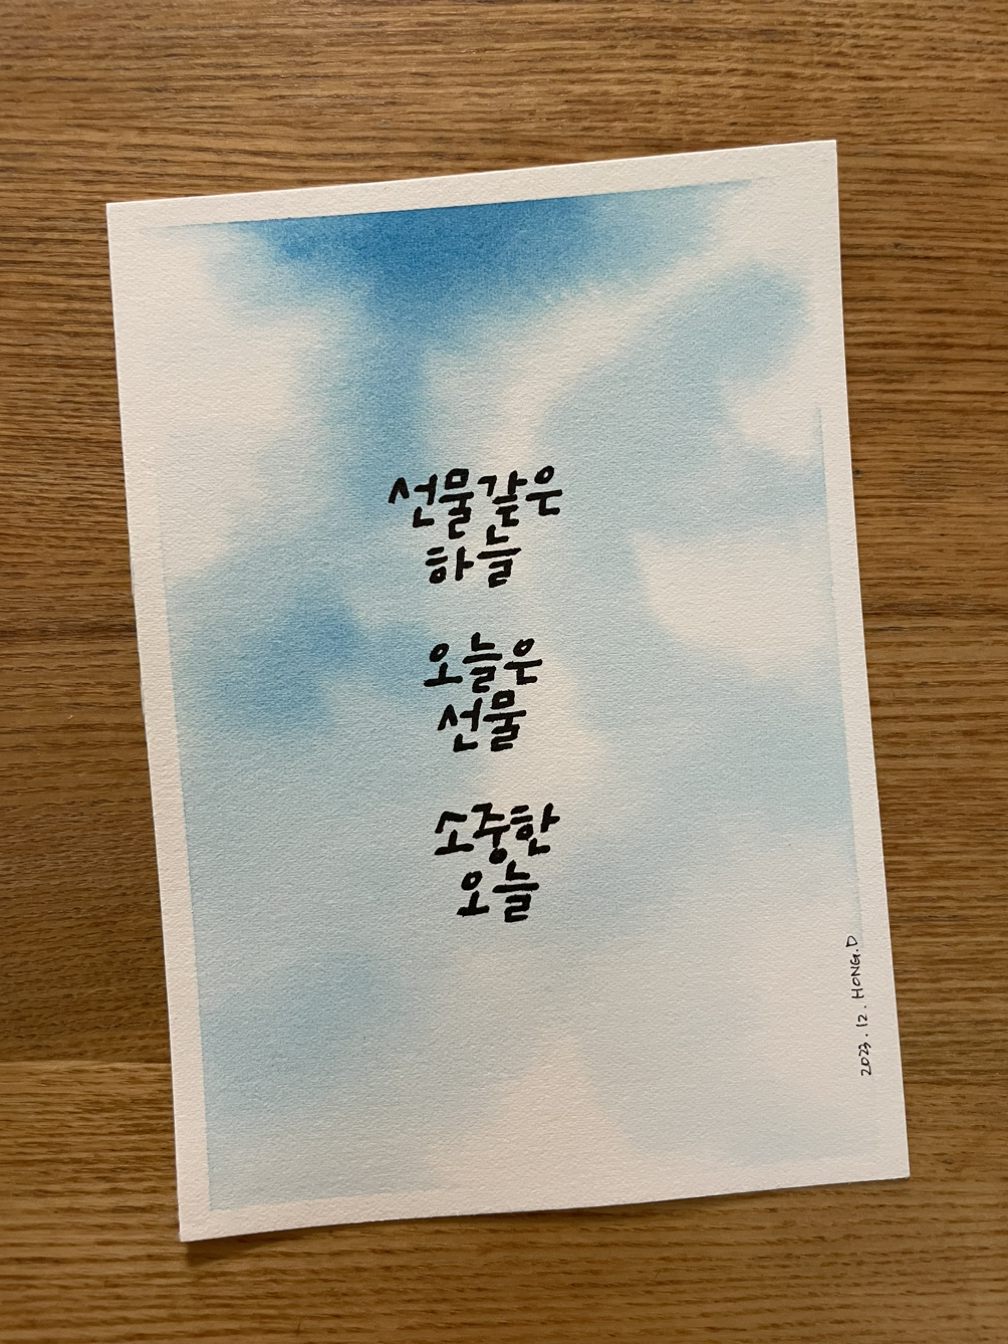 선물같은
하늘
오늘은
선물
소중한
오늘
2023. 12. HONG.D